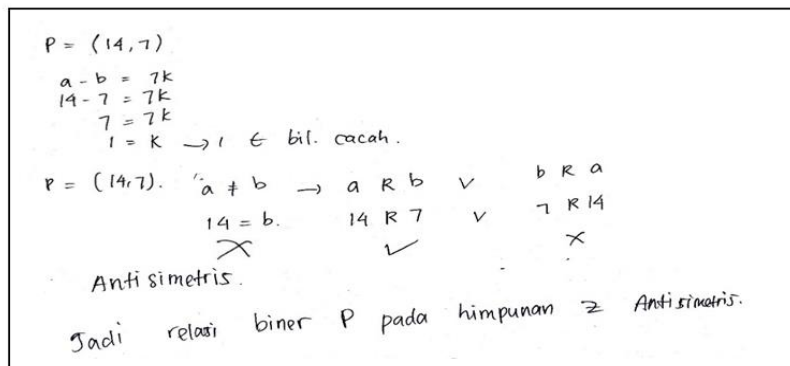 P = (14,7)
a - b = 7k
14 - 7 = 7k
7 = 7k
1 = k → 1 ∈ bil. cacah.
P = (14,7). a ≠ b → a R b ∨ b R a
14 = b. 14 R 7 ∨ 7 R 14
✗ ✓ ✗
Antisimetris.
Jadi relasi biner P pada himpunan Z Antisimetris.